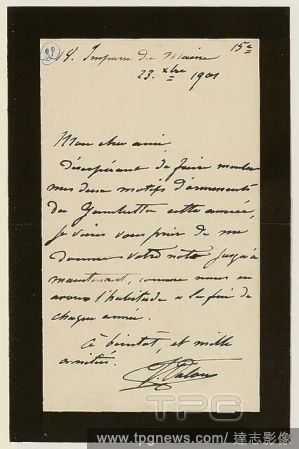 22 4. Impasse du Maine 15e
23. xbre 1901
Mon cher ami
désespérant de faire mouler
mes deux motifs d'ornements
du Gambetta cette année,
je viens vous prier de me
donner votre note jusqu'à
maintenant, comme nous en
avons l'habitude à la fin de
chaque année.
à bientôt, et mille
amitiés.
TPG
www.tpgnews.com/達志影像